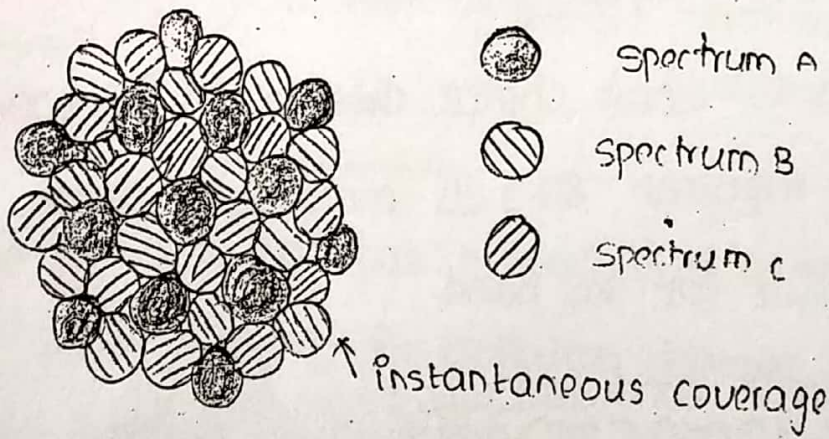 spectrum A
spectrum B
spectrum C
instantaneous coverage